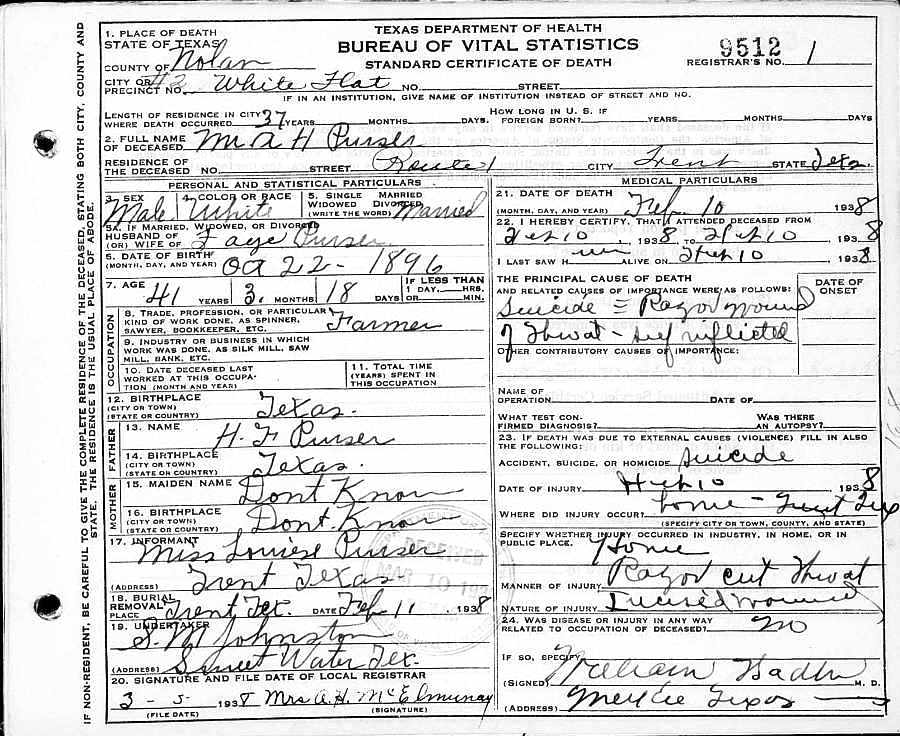 TEXAS DEPARTMENT OF HEALTH
BUREAU OF VITAL STATISTICS
STANDARD CERTIFICATE OF DEATH
9512
REGISTRAR'S NO. 1
1. PLACE OF DEATH
STATE OF TEXAS
COUNTY OF Nolan
CITY OR
PRECINCT NO. #2 White Flat NO. STREET
IF IN AN INSTITUTION, GIVE NAME OF INSTITUTION INSTEAD OF STREET AND NO.
LENGTH OF RESIDENCE IN CITY WHERE DEATH OCCURRED 37 YEARS MONTHS DAYS. HOW LONG IN U. S. IF FOREIGN BORN? YEARS MONTHS DAYS
2. FULL NAME OF DECEASED Mr A H Purser
RESIDENCE OF THE DECEASED NO. STREET Route 1 CITY Trent STATE Texs.
PERSONAL AND STATISTICAL PARTICULARS
3. SEX Male
4. COLOR OR RACE White
5. SINGLE MARRIED WIDOWED DIVORCED (WRITE THE WORD) Married
5A. IF MARRIED, WIDOWED, OR DIVORCED
HUSBAND OF (OR) WIFE OF Faye Purser
6. DATE OF BIRTH (MONTH, DAY, AND YEAR) Oct 22 - 1896
7. AGE 41 YEARS 3 MONTHS 18 DAYS IF LESS THAN 1 DAY, HRS. OR MIN.
OCCUPATION
8. TRADE, PROFESSION, OR PARTICULAR KIND OF WORK DONE, AS SPINNER, SAWYER, BOOKKEEPER, ETC. Farmer
9. INDUSTRY OR BUSINESS IN WHICH WORK WAS DONE, AS SILK MILL, SAW MILL, BANK, ETC.
10. DATE DECEASED LAST WORKED AT THIS OCCUPATION (MONTH AND YEAR)
11. TOTAL TIME (YEARS) SPENT IN THIS OCCUPATION
12. BIRTHPLACE (CITY OR TOWN) (STATE OR COUNTRY) Texas.
FATHER
13. NAME H. F Purser
14. BIRTHPLACE (CITY OR TOWN) (STATE OR COUNTRY) Texas.
MOTHER
15. MAIDEN NAME Dont Know
16. BIRTHPLACE (CITY OR TOWN) (STATE OR COUNTRY) Dont Know
17. INFORMANT Miss Louise Purser
(ADDRESS) Trent Texas
18. BURIAL REMOVAL PLACE Trent Tex. DATE Feb 11, 1938
19. UNDERTAKER S. M Johnston
(ADDRESS) Sweet Water Tex.
20. SIGNATURE AND FILE DATE OF LOCAL REGISTRAR
3 - 5 - 1938 Mrs A. H. McElmurray
(FILE DATE) (SIGNATURE)
MEDICAL PARTICULARS
21. DATE OF DEATH
(MONTH, DAY, AND YEAR) Feb 10 1938
22. I HEREBY CERTIFY, THAT I ATTENDED DECEASED FROM
Feb 10, 1938 TO Feb 10 1938
I LAST SAW H im ALIVE ON Feb 10 1938
THE PRINCIPAL CAUSE OF DEATH AND RELATED CAUSES OF IMPORTANCE WERE AS FOLLOWS:
DATE OF ONSET
Suicide = Razor wound
of Throat - self inflicted
OTHER CONTRIBUTORY CAUSES OF IMPORTANCE:
NAME OF OPERATION DATE OF
WHAT TEST CONFIRMED DIAGNOSIS? WAS THERE AN AUTOPSY?
23. IF DEATH WAS DUE TO EXTERNAL CAUSES (VIOLENCE) FILL IN ALSO THE FOLLOWING:
ACCIDENT, SUICIDE, OR HOMICIDE Suicide
DATE OF INJURY Feb 10 1938
WHERE DID INJURY OCCUR? home - Trent Tex
(SPECIFY CITY OR TOWN, COUNTY, AND STATE)
SPECIFY WHETHER INJURY OCCURRED IN INDUSTRY, IN HOME, OR IN PUBLIC PLACE. Home
MANNER OF INJURY Razor cut Throat
NATURE OF INJURY Incised wound
24. WAS DISEASE OR INJURY IN ANY WAY RELATED TO OCCUPATION OF DECEASED? No
IF SO, SPECIFY
(SIGNED) William M. D.
(ADDRESS) Merkle Texas
RECEIVED
MAR 10
IF NON-RESIDENT, BE CAREFUL TO GIVE THE COMPLETE RESIDENCE OF THE DECEASED, STATING BOTH CITY, COUNTY AND
STATE. THE RESIDENCE IS THE USUAL PLACE OF ABODE.